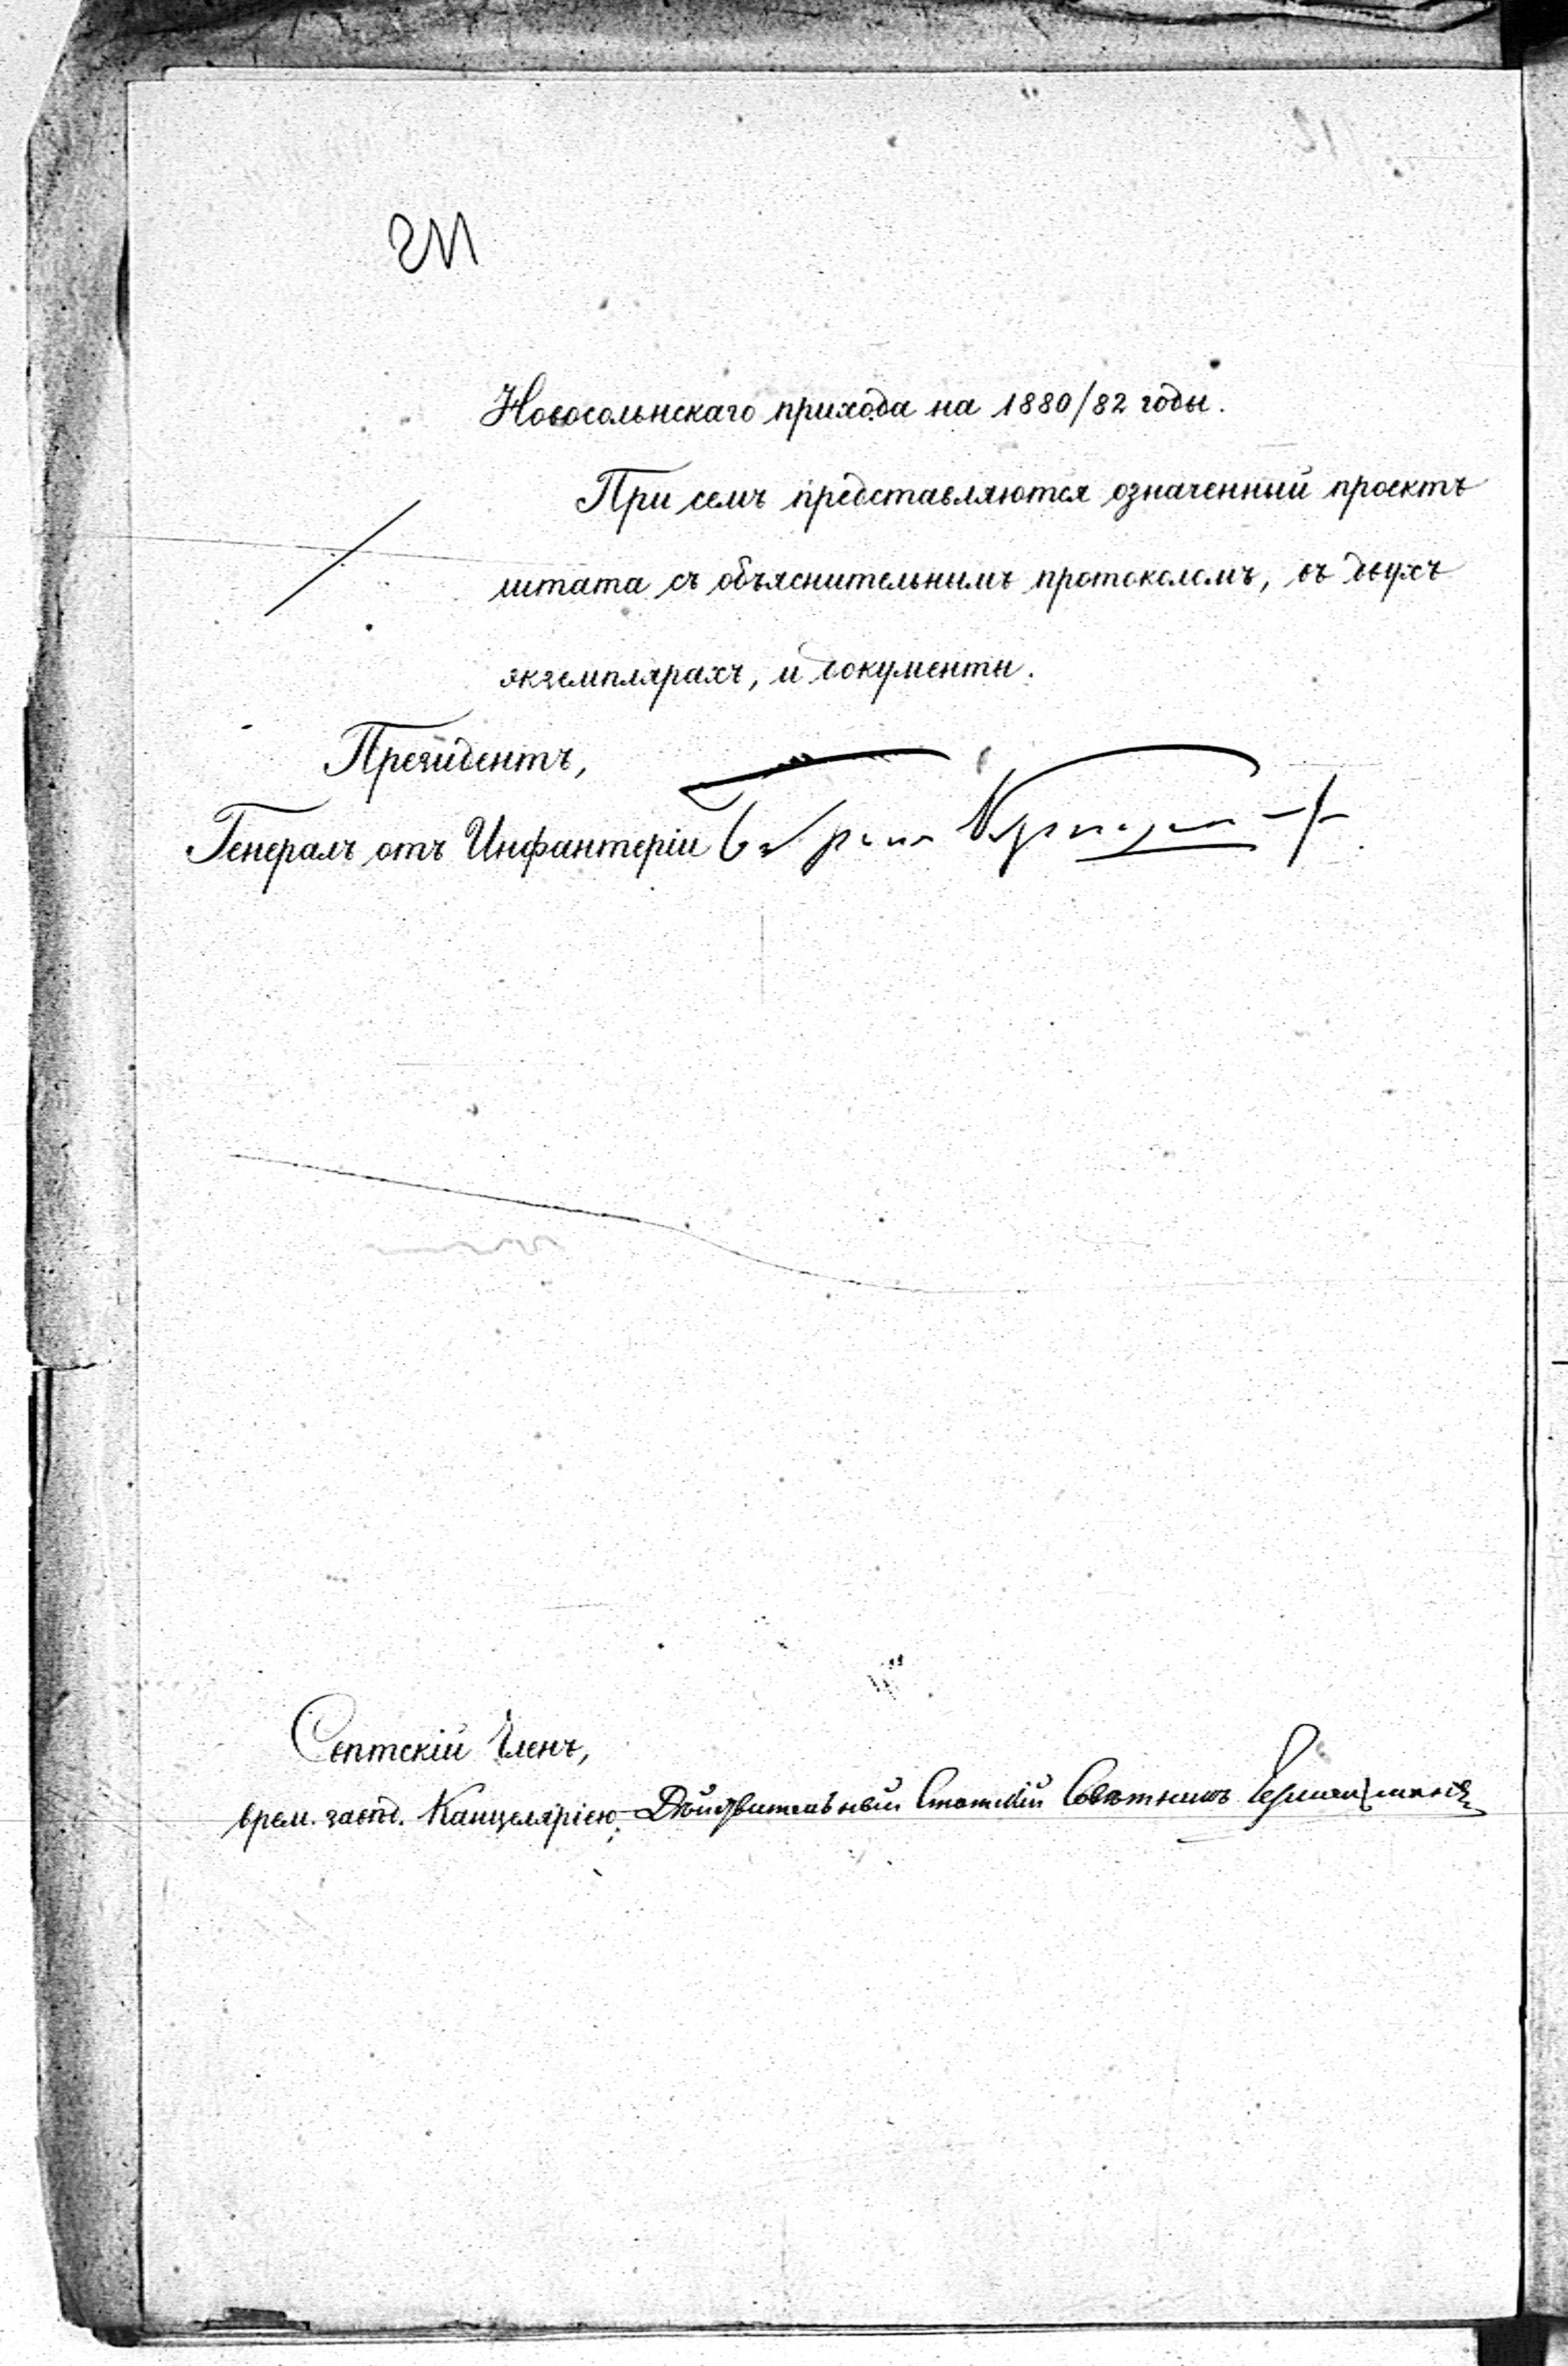 Новосольнскаго прихода на 1880/82 годы.
При семъ представляются означенный проектъ
штата съ объяснительнымъ протоколомъ, въ двухъ
экземплярахъ, и документы.
Президентъ,
Генералъ отъ Инфантеріи
Свѣтскій Членъ,
врем. завѣд. Канцеляріею, Дѣйствительный Статскій Совѣтникъ